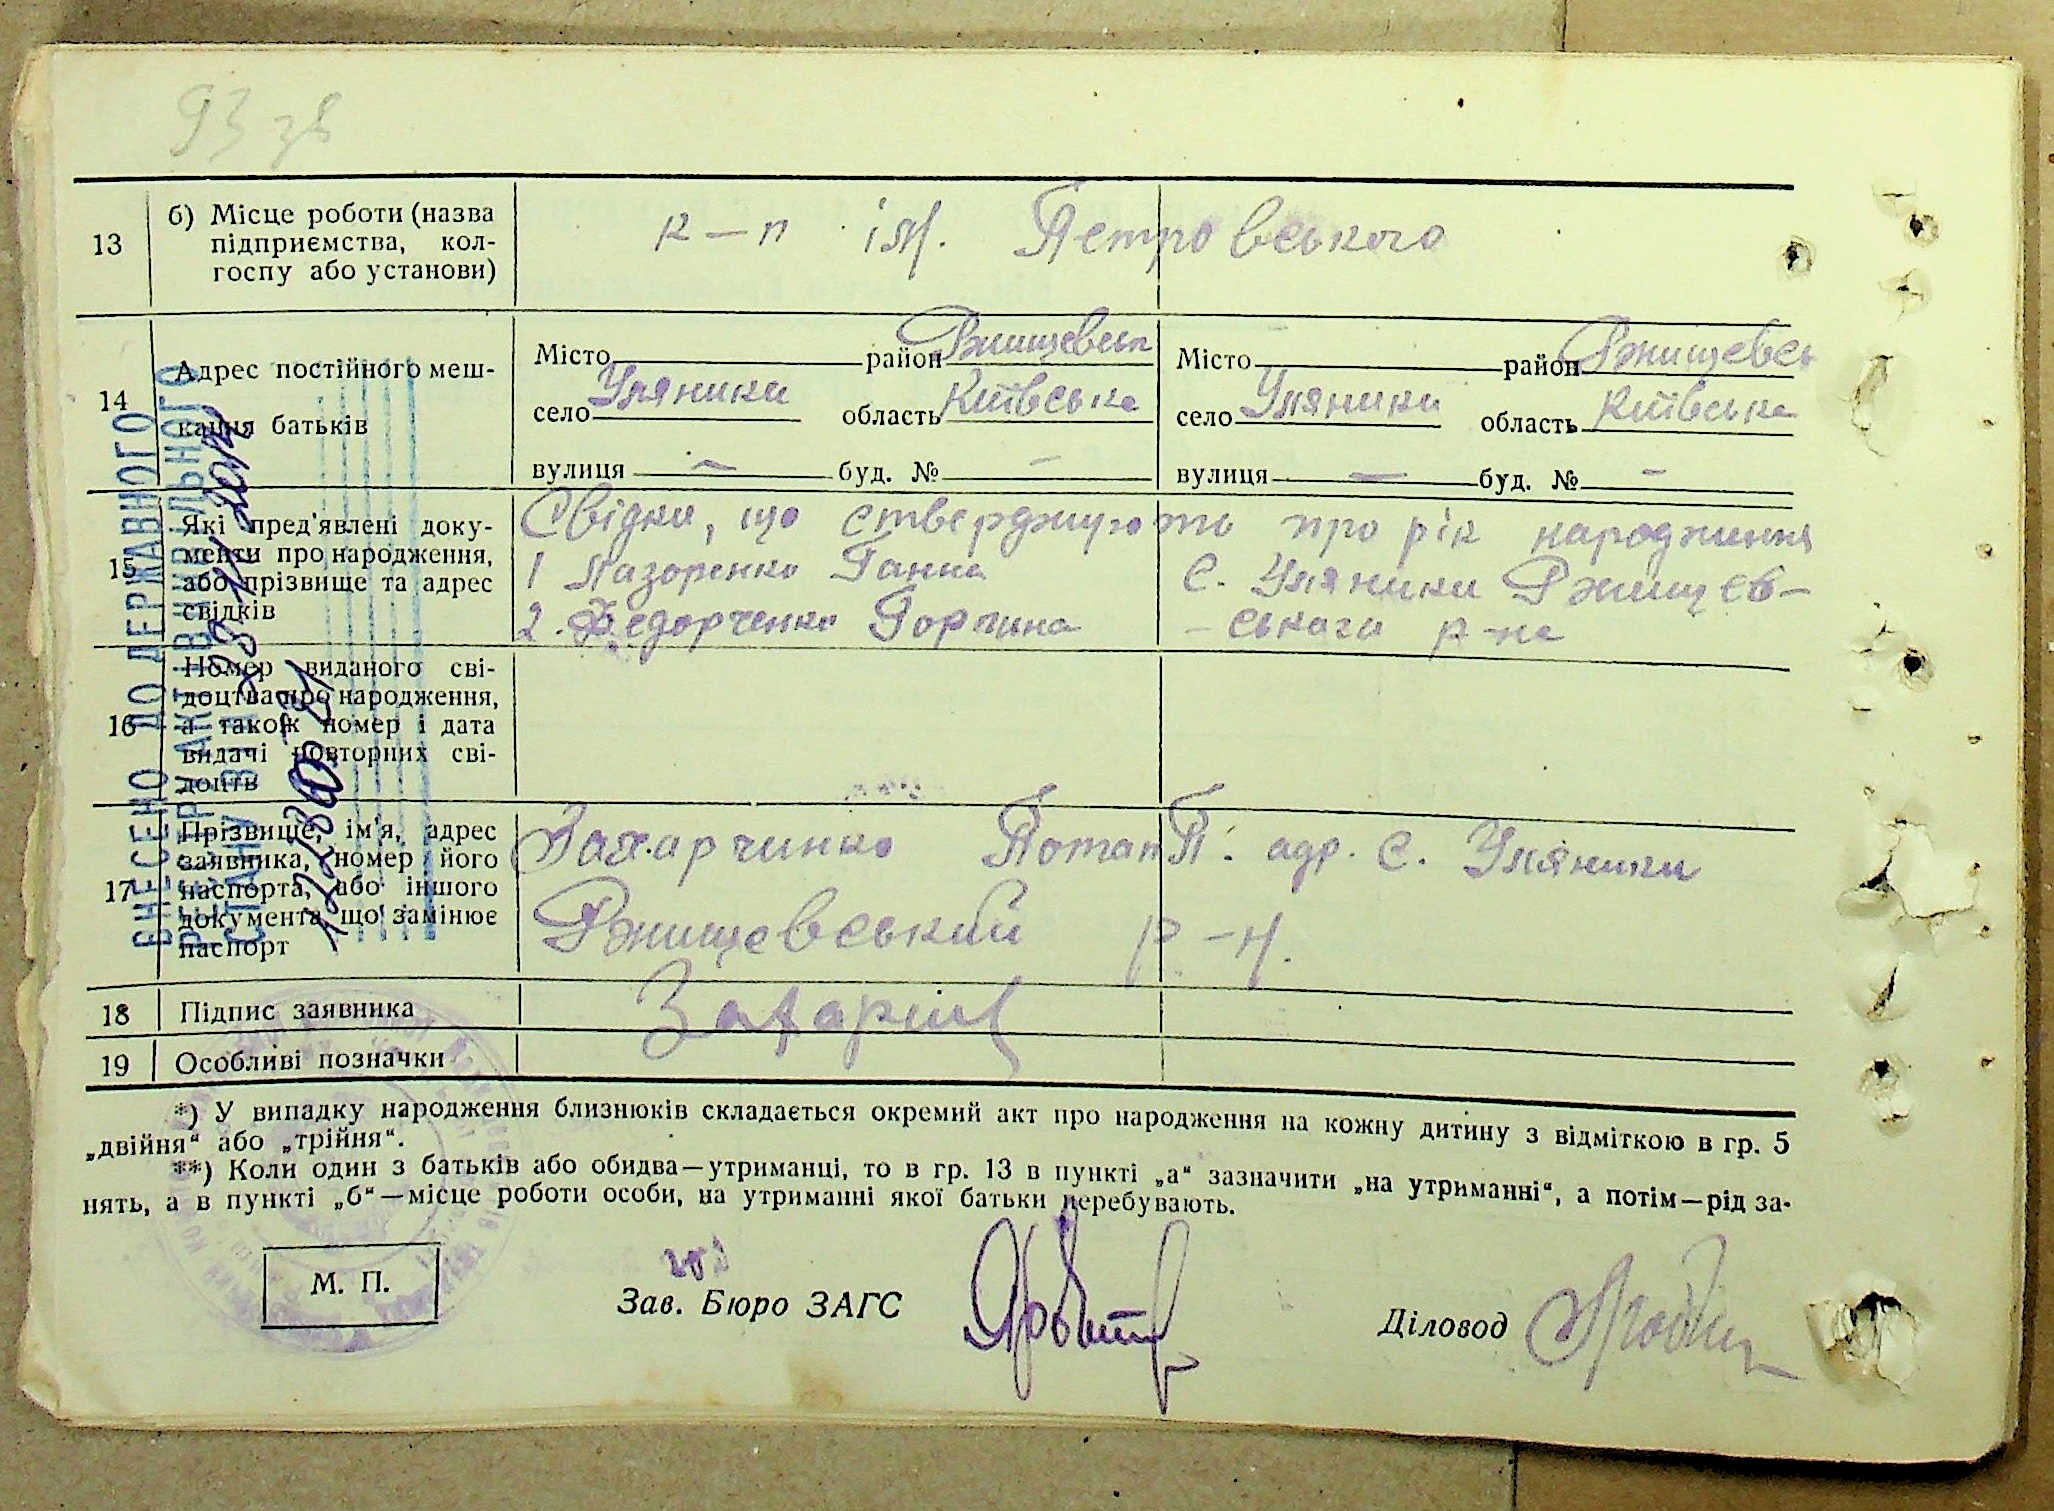 93 зв
13
б) Місце роботи (назва
підприємства, кол-
госпу або установи)
к-п ім. Петровського
14
Адрес постійного меш-
кання батьків
Місто район Ржищевськ
село Уляники область Київська
вулиця — буд. № —
Місто район Ржищевсь
село Уляники область Київська
вулиця — буд. № —
15
Які пред'явлені доку-
менти про народження,
або прізвище та адрес
свідків
Свідки, що стверджують про рік народження
1 Назоренко Ганна с. Уляники Ржищев-
2. Федорченко Горпина -ського р-на
16
Номер виданого сві-
доцтва про народження,
а також номер і дата
видачі повторних сві-
доцтв
17
Прізвище, ім'я, адрес
заявника, номер його
паспорта, або іншого
документа що замінює
паспорт
Захарчинко Потап П. адр. с. Уляники
Ржищевський р-н.
18
Підпис заявника
19
Особливі позначки
ВНЕСЕНО ДО ДЕРЖАВНОГО
РЕЄСТРУ АКТІВ ЦИВІЛЬНОГО
СТАНУ ЗА №
*) У випадку народження близнюків складається окремий акт про народження на кожну дитину з відміткою в гр. 5
„двійня“ або „трійня“.
**) Коли один з батьків або обидва—утриманці, то в гр. 13 в пункті „а“ зазначити „на утриманні“, а потім—рід за-
нять, а в пункті „б“—місце роботи особи, на утриманні якої батьки перебувають.
М. П.
Зав. Бюро ЗАГС
Діловод